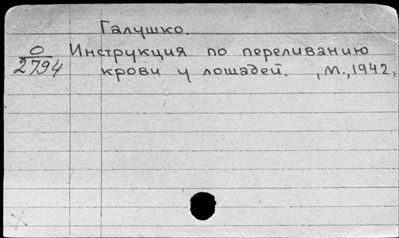 Галушко.
О
2794
Инструкция по переливанию
крови у лошадей. , М., 1942,